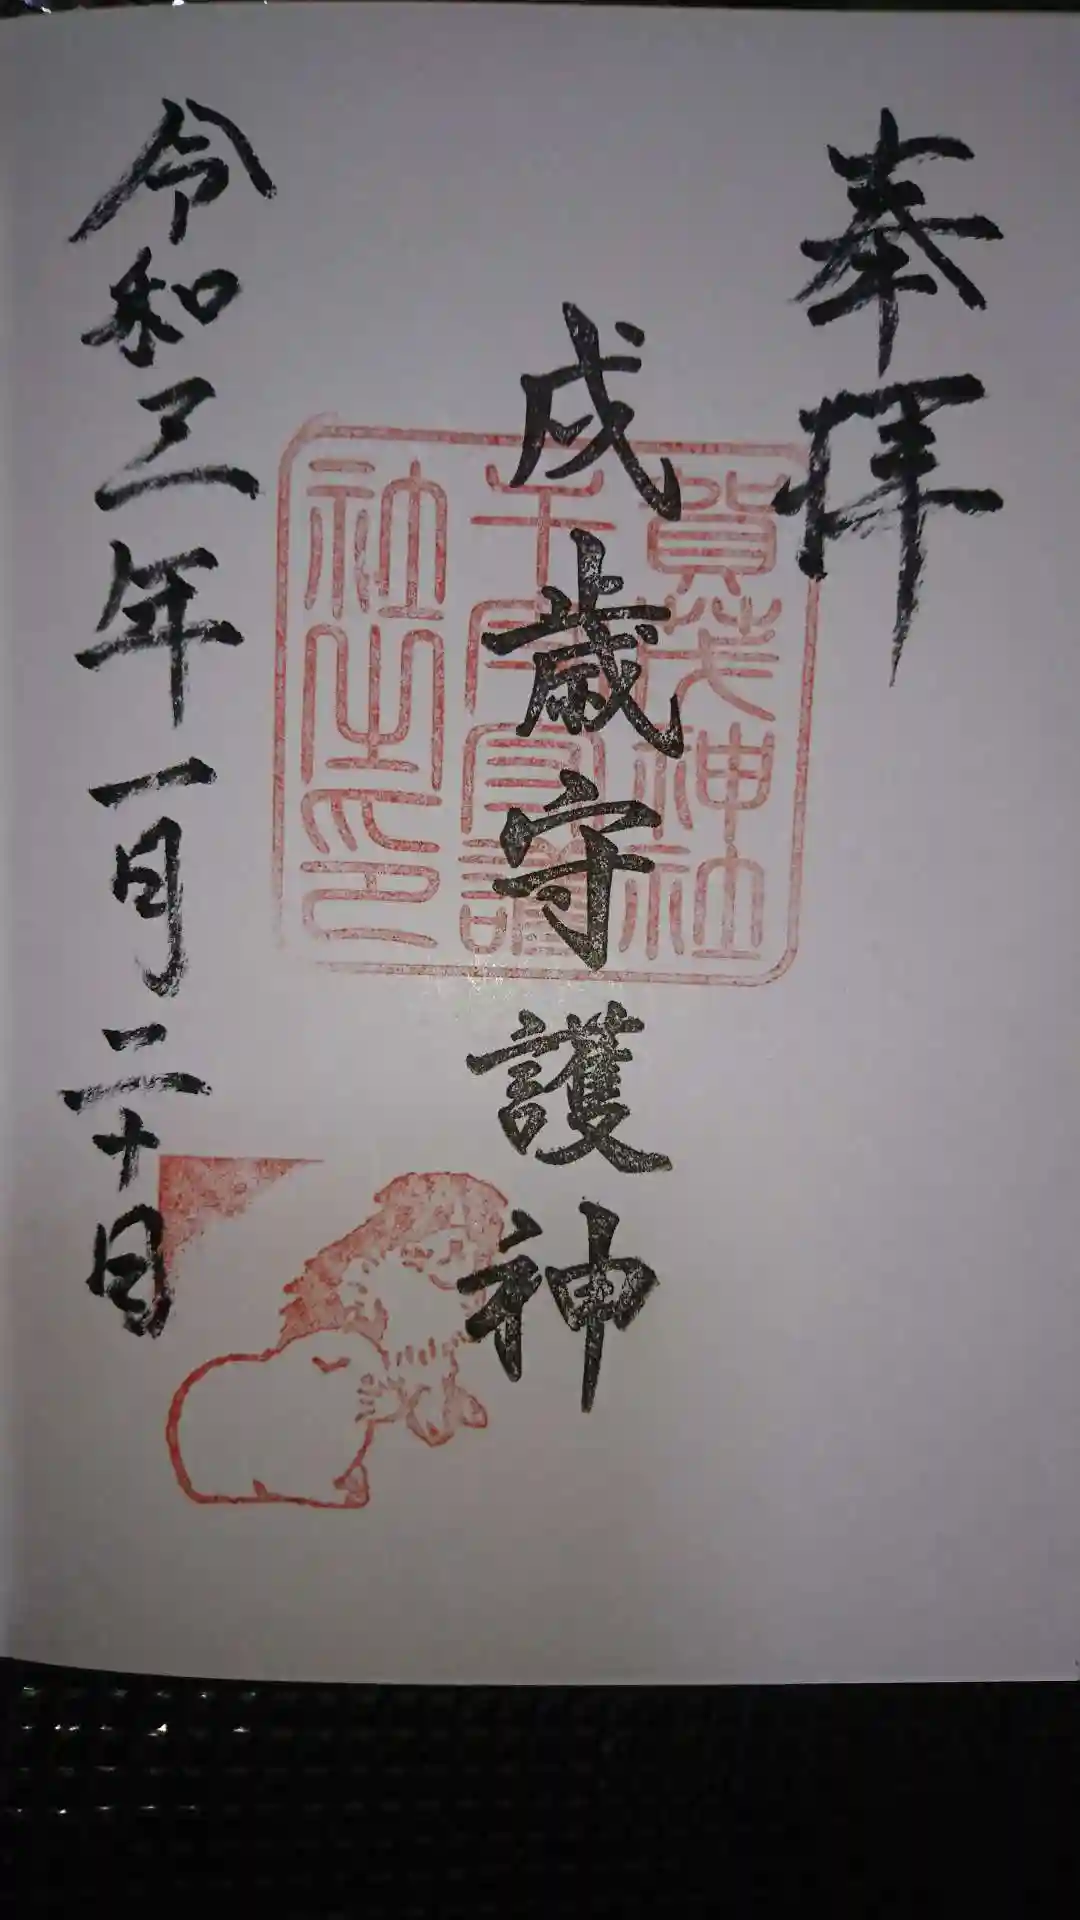 奉拝
戌歳守護神
賀茂神社
社之印
令和三年一月二十日